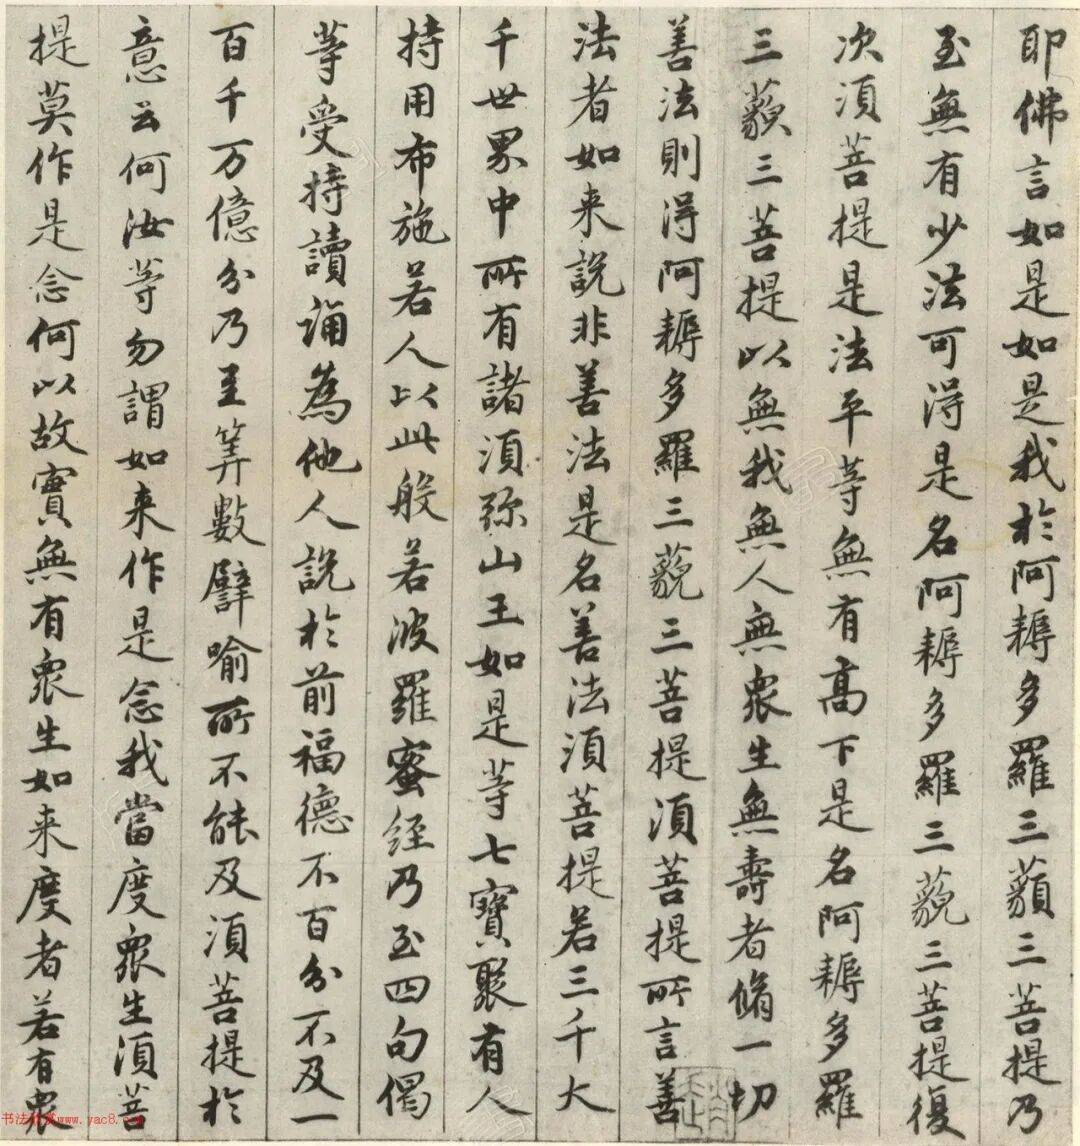 耶佛言如是如是我於阿耨多羅三藐三菩提乃
至無有少法可得是名阿耨多羅三藐三菩提復
次須菩提是法平等無有高下是名阿耨多羅
三藐三菩提以無我無人無衆生無壽者脩一切
善法則得阿耨多羅三藐三菩提須菩提所言善
法者如来說非善法是名善法須菩提若三千大
千世界中所有諸須弥山王如是等七寶聚有人
持用布施若人以此般若波羅蜜經乃至四句偈
等受持讀誦為他人說於前福德不百分不及一
百千万億分乃至筭數譬喻所不能及須菩提於
意云何汝等勿謂如来作是念我當度衆生須菩
提莫作是念何以故實無有衆生如来度者若有衆
www.yac8.com